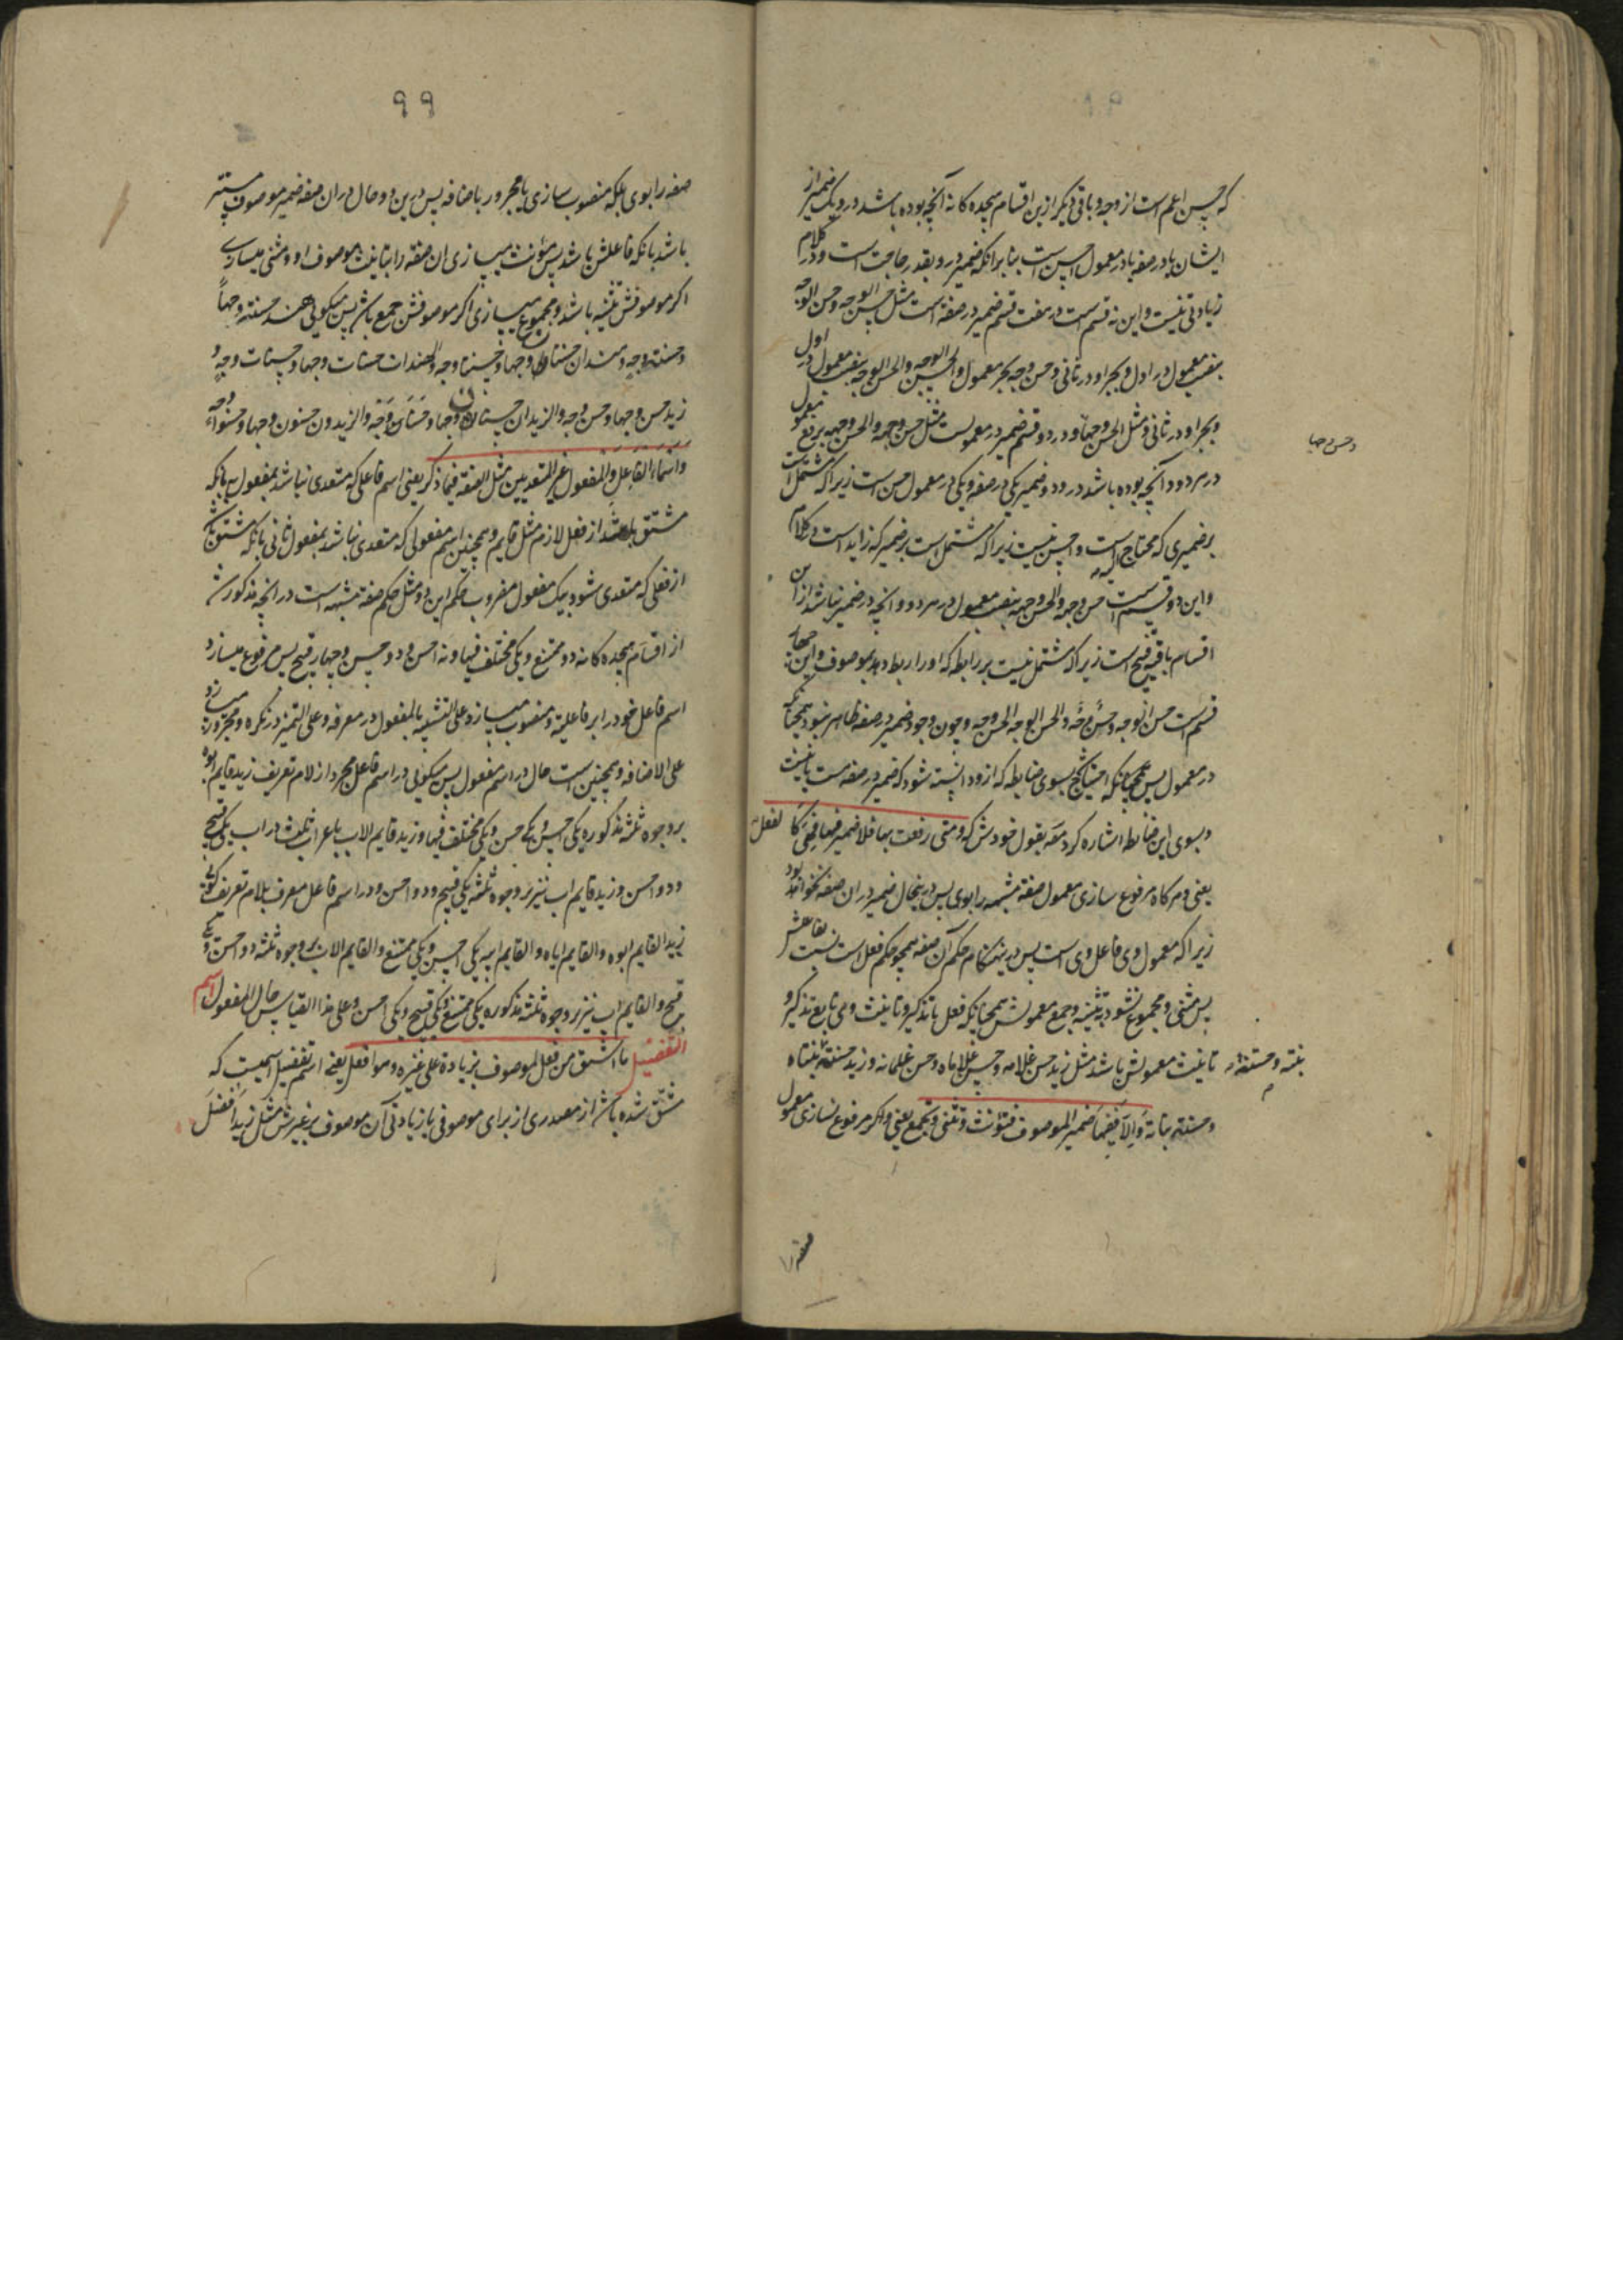 که حسن اعم است از وجه و باقی دیگر ازین اقسام هجده کانه آنچه بوده باشد در و یک ضمیر از
ایشان یا در صفه یا در معمول احسن است بنا برانکه ضمیر در و بقدر حاجت است و در کلام
زیادتی نیست و این نه قسم است در هفت قسم ضمیر در صفه است مثل حسن الوجه و حسن الوجه
بنصب معمول در اول و بجر او در ثانی و حسن وجه بجر معمول و الحسن الوجه و الحسن الوجه بنصب معمول در اول
و بجر او در ثانی و مثل الحسن وجها و در دو قسم ضمیر در معمولست مثل حسن وجهه و الحسن وجهه برفع معمول
در هر دو و آنچه بوده باشد در و دو ضمیر یکی در صفه و یکی در معمول حسن است زیرا که مشتمل است
بر ضمیری که محتاج الیه است و احسن نیست زیرا که مشتمل است بر ضمیر که زاید است در کلام
و این دو قسم است حسن وجهه و الحسن وجهه بنصب معمول در هر دو و آنچه در و ضمیر نباشد از این
اقسام باقیه قبیح است زیرا که مشتمل نیست بر رابطه که او را ربط دهد بموصوف و این چهار
قسم است حسن الوجه و حسن وجه و الحسن الوجه الحسن وجه و چون وجود ضمیر در صفه ظاهر نبود همچنانکه
در معمول پس محتاج بسوی ضابطه که ازو دانسته شود که ضمیر در صفه هست یا نیست
و بسوی این ضابطه اشاره کرد مصه بقول خودش که و متی رفعت بها فلا ضمیر فیها فهی کالفعل
یعنی و هر کاه مرفوع سازی معمول صفه مشبهه را بوی پس درینحال ضمیر در ان صفه نخواهد بود
زیرا که معمول وی فاعل وی است پس درینهنکام حکم آن صفه همچو حکم فعل است نسبت بفاعلش
پس مثنی و مجموع نشود بتثنیه و جمع معمولش همچنانکه فعل با تذکیر و تانیث وی تابع تذکیر و
تانیث معمولش باشد مثل زید حسن غلامه و حسن غلاماه و حسن غلمانه و زید حسنة بنتاه
و حسنة بناته و الا ففیها ضمیر الموصوف فتؤنث و تثنی و تجمع یعنی و اکر مرفوع نسازی معمول
و حسن وجها
بنته و حسنة
صفه را
۹۹
صفه را بوی بلکه منصوب سازی یا مجرور باضافه پس درین دو حال در ان صفه ضمیر موصوف مستتر
باشد بانکه فاعلش باشد پس مؤنث میسازی ان صفه را بتانیث موصوف او و مثنی میسازی
اکر موصوفش تثنیه باشد و مجموع میسازی اکر موصوفش جمع باشد پس میکویی هند حسنة وجها
و حسنة وجه و هندان حسنتان وجها و حسنتا وجه و الهندات حسنات وجها و حسنات وجه و
زید حسن وجها و حسن وجه و الزیدان حسنان وجها و حسنا وجه و الزیدون حسنون وجها و حسنوا وجه
و اسماء الفاعل و المفعول غیر المتعدیین مثل الصفة فیما ذکر یعنی اسم فاعلی که متعدی نباشد بمفعول به بانکه
مشتق باشد از فعل لازم مثل قایم و همچنین اسم مفعولی که متعدی نباشد بمفعول ثانی بانکه مشتق باشد
از فعلی که متعدی شود بیک مفعول مضروب حکم این دو مثل حکم صفه مشبهه است در انچه مذکور شد
از اقسام هجده کانه دو ممتنع و یکی مختلف فیها و نه احسن و دو حسن و چهار قبیح پس مرفوع میسازد
اسم فاعل خود را بر فاعلیة و منصوب میسازد علی التشبیه بالمفعول در معرفه و علی التمیز در نکره و مجرور میسازد
علی الاضافه و همچنین است حال در اسم مفعول پس میکویی در اسم فاعل مجرد از لام تعریف زید قایم ابوه
بر وجوه ثلثه مذکوره یکی احسن و یکی حسن و یکی مختلف فیها و زید قایم الاب باعراب ثلث در اب یکی قبیح
و دو احسن و زید قایم اب نیز بر وجوه ثلثه یکی قبیح و دو احسن و در اسم فاعل معرف بلام تعریف کویی
زید القایم ابوه و القایم اباه و القایم ابیه یکی احسن و یکی ممتنع و القایم الاب بر وجوه ثلثه دو احسن و یکی
قبیح و القایم اب نیز بر وجوه ثلثه مذکوره یکی ممتنع و یکی قبیح و یکی احسن و علی هذا القیاس حال المفعول اسم
التفضیل ما اشتق من فعل لموصوف بزیادة علی غیره و هو افعل یعنی اسم تفضیل اسمیست که
مشتق شده باشد از مصدری از برای موصوفی با زیادتی آن موصوف بر غیرش مثل زید افضل